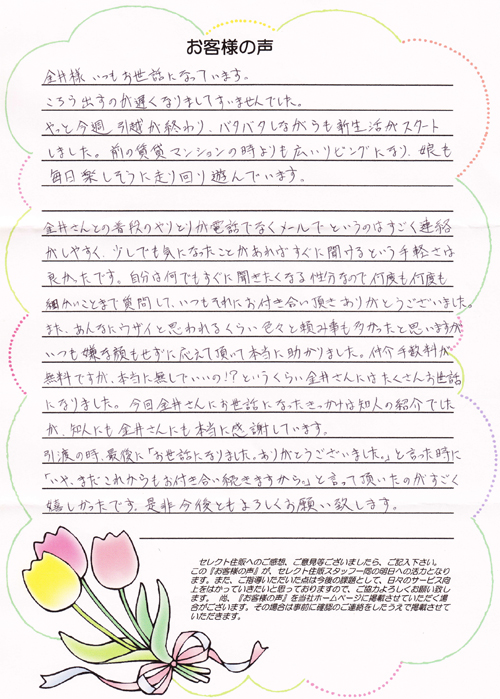 お客様の声
金井様 いつもお世話になっています。
ころう出すのが遅くなりましてすいませんでした。
やっと今週 引越が終わり、バタバタしながらも新生活がスタート
しました。前の賃貸マンションの時よりも広いリビングになり、娘も
毎日楽しそうに走り回り遊んでいます。
金井さんとの普段のやりとりが電話でなくメールでというのはすごく連絡
がしやすく、少しでも気になったことがあればすぐに聞けるという手軽さは
良かったです。自分は何でもすぐに聞きたくなる性分なので何度も何度も
細かいことまで質問して、いつもそれにお付き合い頂きありがとうございました。
また、あんなにウザイと思われるくらい色々と頼み事も多かったと思いますが
いつも嫌な顔もせずに応えて頂いて本当に助かりました。仲介手数料が
無料ですが、本当に無しでいいの!?というくらい金井さんにはたくさんお世話
になりました。今回金井さんにお世話になったきっかけは知人の紹介でした
が、知人にも金井さんにも本当に感謝しています。
引渡の時、最後に「お世話になりました。ありがとうございました。」と言った時に
「いや、まだこれからもお付き合い続きますから。」と言って頂いたのがすごく
嬉しかったです。是非今後ともよろしくお願い致します。
セレクト住販へのご感想、ご意見等ございましたら、ご記入下さい。
この『お客様の声』が、セレクト住販スタッフ一同の明日への活力となり
ます。また、ご指導いただいた点は今後の課題として、日々のサービス向
上をはかっていきたいと思っておりますので、ご協力よろしくお願い致しま
す。 尚、『お客様の声』を当社ホームページに掲載させていただく場
合がございます。その場合は事前に確認のご連絡をしたうえで掲載させて
いただきます。